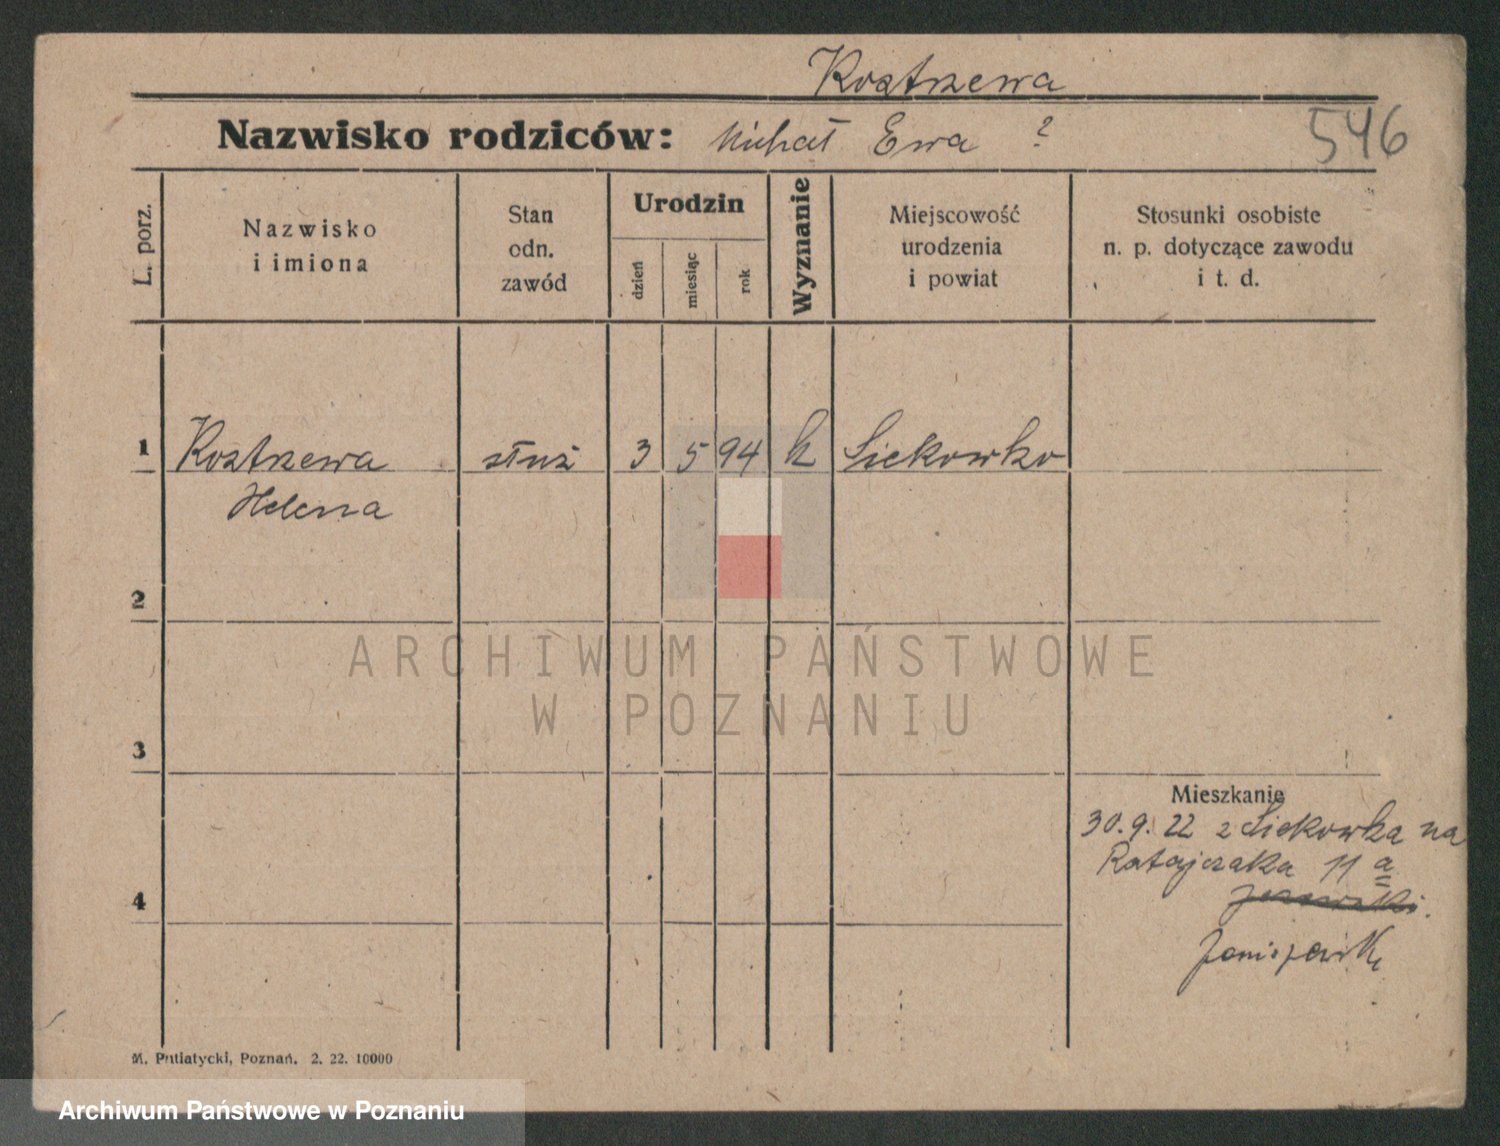 Kostrzewa
Nazwisko rodziców: Michał Ewa ?
546
L. porz.
Nazwisko
i imiona
Stan
odn.
zawód
Urodzin
dzień
miesiąc
rok
Wyznanie
Miejscowość
urodzenia
i powiat
Stosunki osobiste
n. p. dotyczące zawodu
i t. d.
1 Kostrzewa służ 3 5 94 k Siekowko
Helena
2
ARCHIWUM PAŃSTWOWE
W POZNANIU
3
Mieszkanie
30.9.22 z Siekowka na
Ratajczaka 11 a
4
Janiszewski
M. Putiatycki, Poznań. 2. 22. 10000
Archiwum Państwowe w Poznaniu